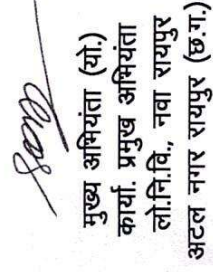 मुख्य अभियंता (यो.)
कार्या. प्रमुख अभियंता
लो.नि.वि., नवा रायपुर
अटल नगर रायपुर (छ.ग.)